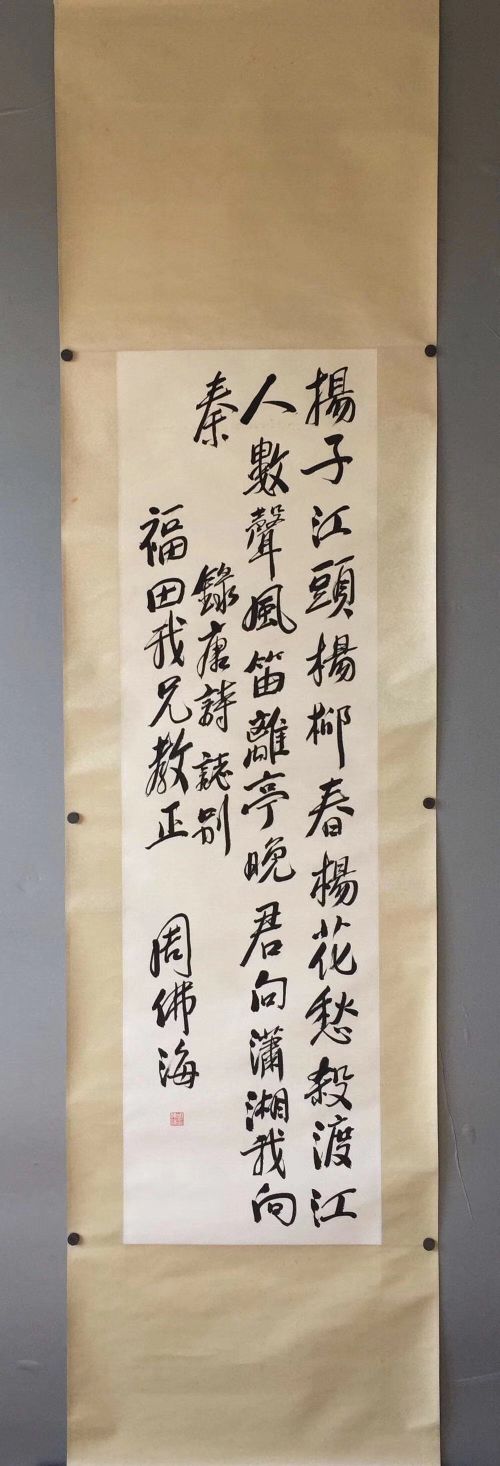 揚子江頭楊柳春楊花愁殺渡江
人數聲風笛離亭晚君向瀟湘我向
秦
錄唐詩誌別
福田我兄教正
周佛海